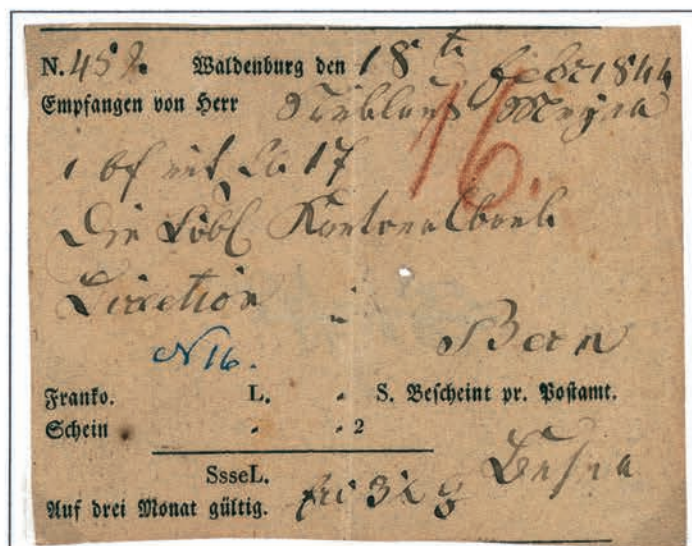 N. 452. Waldenburg den 18ten febr 1844
Empfangen von Herr Meyer
1 bf mit 17
16.
Die Löbl Kantonalbank
Direction
Bern
N 16.
Franko. L. . S. Bescheint pr. Postamt.
Schein . . 2
SsseL.
Auf drei Monat gültig.